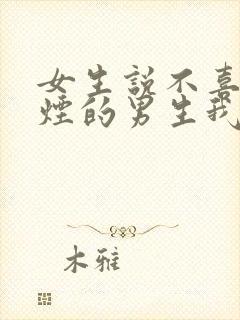 女生說不喜
煙的男生我
木雅